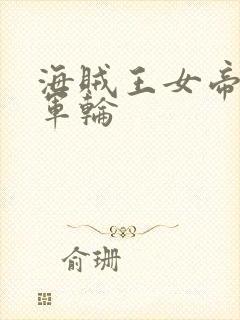 海賊王女帝
軍輪
俞珊